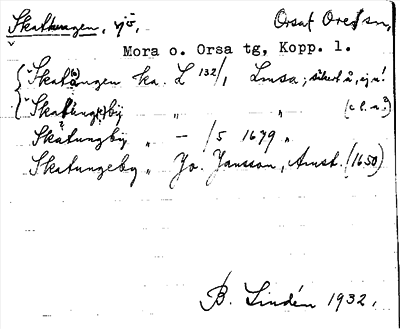 Skattungen, sjö, Orsa f Ore sn,
Mora o. Orsa tg, Kopp. l.
"Skatungen ka. L 132/1 Lmsa; säkert u, ej n!
"Skatungby " "
Skatungby " — /5 1679 "
Skatungeby " Jo. Jansson, Amst. (1650)
B. Lindén 1932.